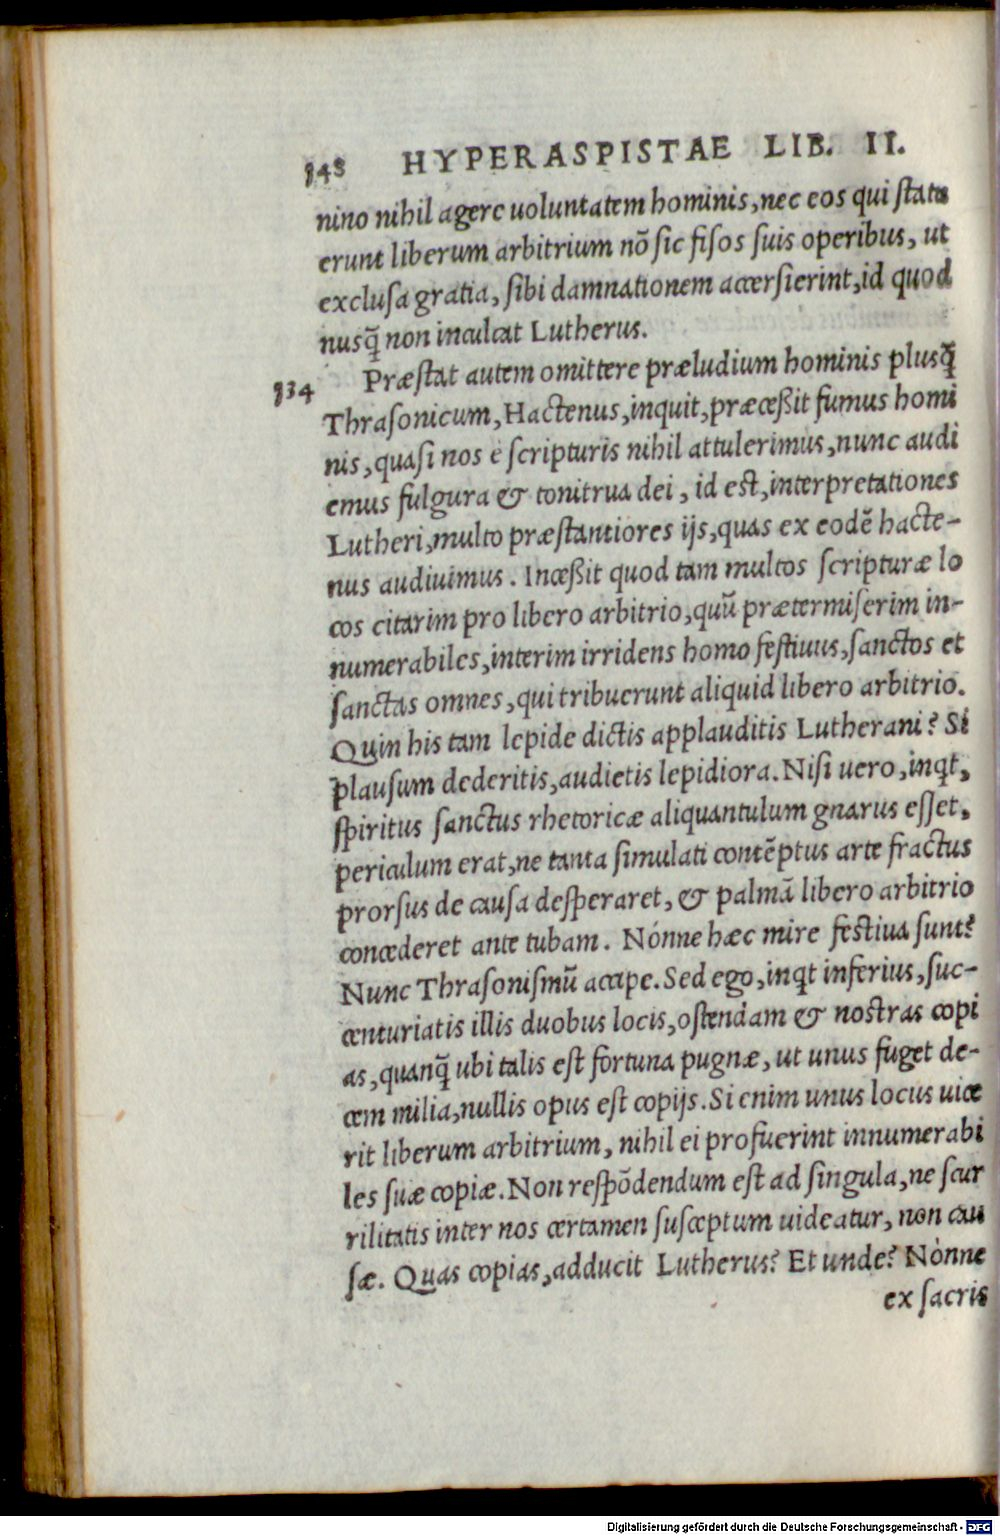 948 HYPERASPISTAE LIB. II.
nino nihil agere uoluntatem hominis, nec eos qui statu
erunt liberum arbitrium nō sic fisos suis operibus, ut
exclusa gratia, sibi damnationem accersierint, id quod
nusq̃ non inculcat Lutherus.
934 Præstat autem omittere præludium hominis plusq̃
Thrasonicum, Hactenus, inquit, præceßit fumus homi
nis, quasi nos è scripturis nihil attulerimus, nunc audi
emus fulgura & tonitrua dei, id est, interpretationes
Lutheri, multo præstantiores ijs, quas ex eodē hacte-
nus audiuimus. Inceßit quod tam multos scripturæ lo
cos citarim pro libero arbitrio, quū prætermiserim in-
numerabiles, interim irridens homo festiuus, sanctos et
sanctas omnes, qui tribuerunt aliquid libero arbitrio.
Quin his tam lepide dictis applauditis Lutherani? Si
plausum dederitis, audietis lepidiora. Nisi uero, inqt,
spiritus sanctus rhetoricæ aliquantulum gnarus esset,
periculum erat, ne tanta simulati contēptus arte fractus
prorsus de causa desperaret, & palmā libero arbitrio
concederet ante tubam. Nónne hæc mire festiua sunt?
Nunc Thrasonismū accipe. Sed ego, inqt inferius, suc-
centuriatis illis duobus locis, ostendam & nostras copi
as, quanq̃ ubi talis est fortuna pugnæ, ut unus fuget de-
cem milia, nullis opus est copijs. Si enim unus locus uice
rit liberum arbitrium, nihil ei profuerint innumerabi
les suæ copiæ. Non respōdendum est ad singula, ne scur
rilitatis inter nos certamen susceptum uideatur, non cau
sæ. Quas copias, adducit Lutherus? Et unde? Nónne
ex sacris
Digitalisierung gefördert durch die Deutsche Forschungsgemeinschaft - DFG